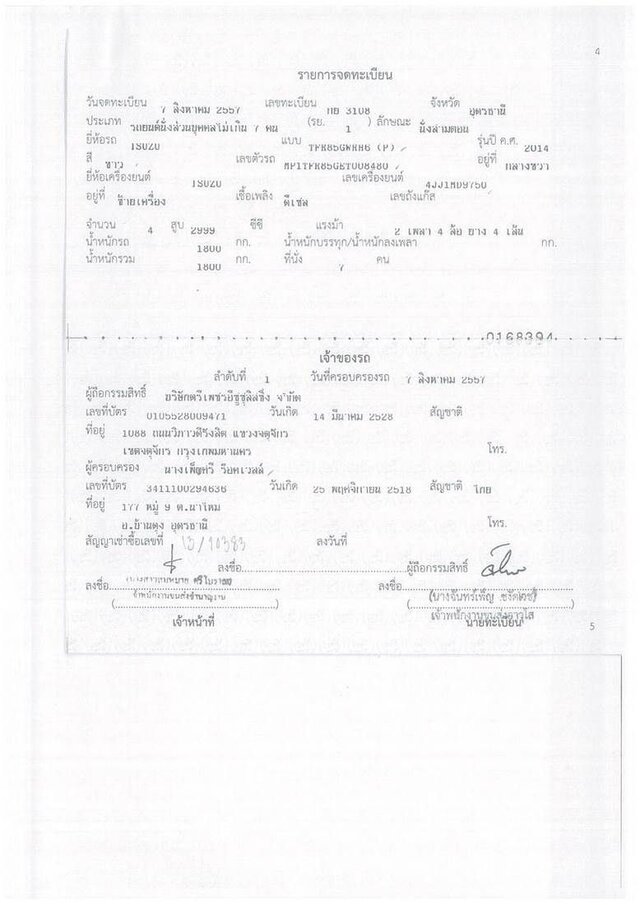 4
รายการจดทะเบียน
วันจดทะเบียน 7 สิงหาคม 2557 เลขทะเบียน กย 3108 จังหวัด อุดรธานี
ประเภท รถยนต์นั่งส่วนบุคคลไม่เกิน 7 คน (รย. 1 ) ลักษณะ นั่งสามตอน
ยี่ห้อรถ ISUZU แบบ รุ่นปี ค.ศ. 2014
สี ขาว เลขตัวรถ อยู่ที่ กลางขวา
ยี่ห้อเครื่องยนต์ ISUZU เลขเครื่องยนต์ 4JJ1MD9750
อยู่ที่ ซ้ายเครื่อง เชื้อเพลิง ดีเซล เลขถังแก๊ส
จำนวน 4 สูบ 2999 ซีซี แรงม้า 2 เพลา 4 ล้อ ยาง 4 เส้น
น้ำหนักรถ 1800 กก. น้ำหนักบรรทุก/น้ำหนักลงเพลา กก.
น้ำหนักรวม 1800 กก. ที่นั่ง 7 คน
0168394
เจ้าของรถ
ลำดับที่ 1 วันที่ครอบครองรถ 7 สิงหาคม 2557
ผู้ถือกรรมสิทธิ์ บริษัทตรีเพชรอีซูซุลิสซิ่ง จำกัด
เลขที่บัตร 0105528009471 วันเกิด 14 มีนาคม 2528 สัญชาติ
ที่อยู่ 1088 ถนนวิภาวดีรังสิต แขวงจตุจักร
เขตจตุจักร กรุงเทพมหานคร โทร.
ผู้ครอบครอง นางเพ็ญศรี ร็อคเวลล์
เลขที่บัตร 3411100294636 วันเกิด 25 พฤศจิกายน 2518 สัญชาติ ไทย
ที่อยู่ 177 หมู่ 9 ต.นาไหม
อ.บ้านดุง อุดรธานี โทร.
สัญญาเช่าซื้อเลขที่ 13/10383 ลงวันที่
ลงชื่อ ผู้ถือกรรมสิทธิ์
ลงชื่อ ลงชื่อ
เจ้าพนักงานขนส่งชำนาญงาน
เจ้าพนักงานขนส่งอาวุโส
เจ้าหน้าที่ นายทะเบียน 5